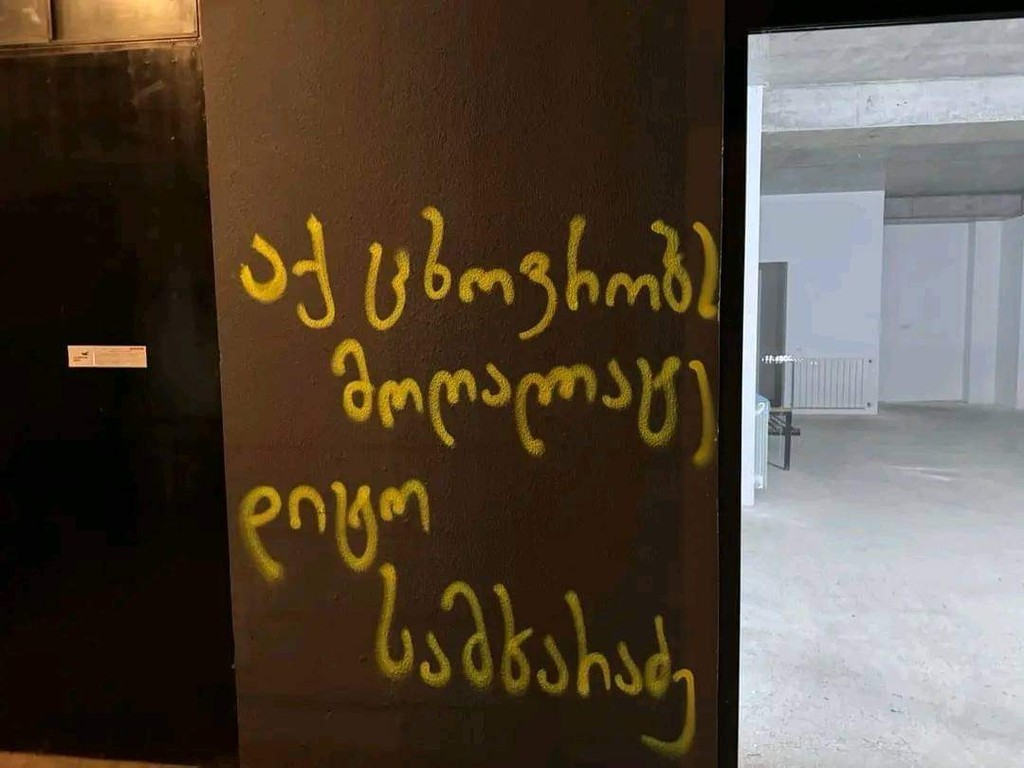 აქ ცხოვრობს
მოღალატე
დიტო
სამხარაძე